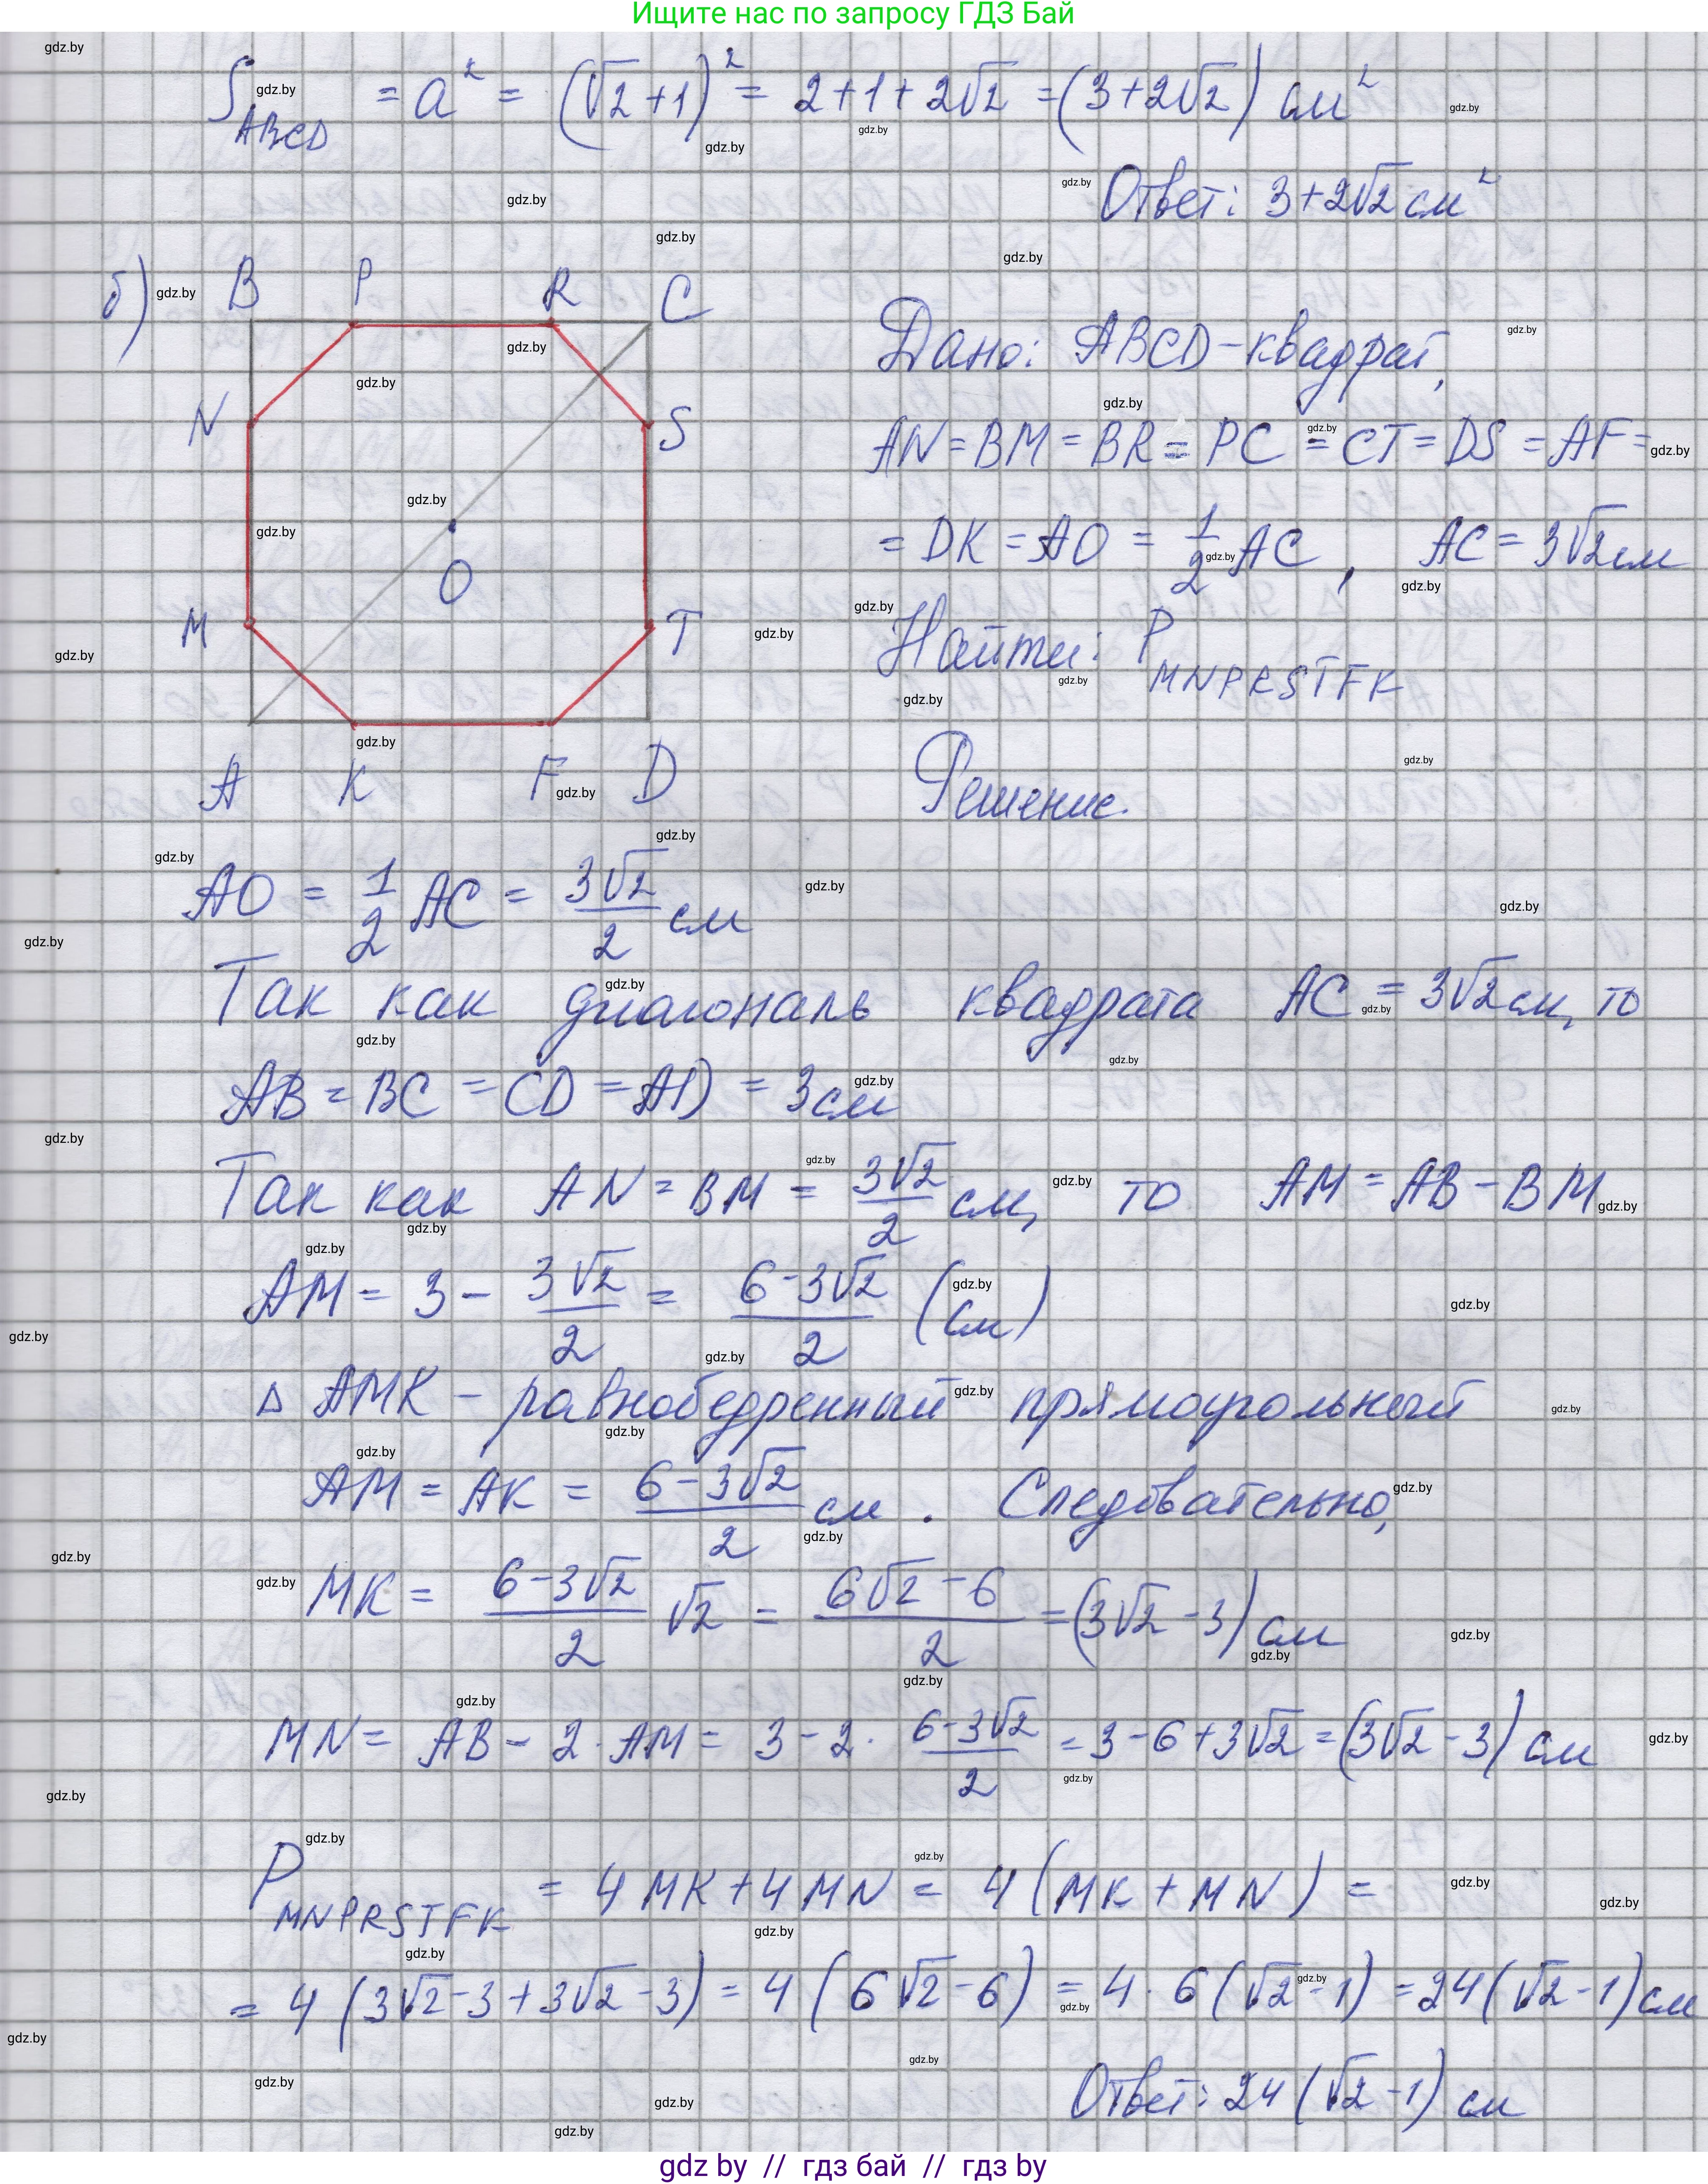 Ищите нас по запросу ГДЗ Бай
S_ABCD = a² = (√2+1)² = 2+1+2√2 = (3+2√2) см²
Ответ: 3+2√2 см²
б)
B P R C
N S
O
M T
A K F D
Дано: ABCD-квадрат,
AN = BM = BR = PC = CT = DS = AF =
= DK = AO = 1/2 AC, AC = 3√2 см
Найти: P_MNPRSTFK
Решение.
AO = 1/2 AC = 3√2/2 см
Так как диагональ квадрата AC = 3√2 см, то
AB = BC = CD = AD = 3 см
Так как AN = BM = 3√2/2 см, то AM = AB - BM
AM = 3 - 3√2/2 = (6-3√2)/2 (см)
Δ AMK - равнобедренный прямоугольный
AM = AK = (6-3√2)/2 см. Следовательно,
MK = (6-3√2)/2 √2 = (6√2-6)/2 = (3√2-3) см
MN = AB - 2·AM = 3-2·(6-3√2)/2 = 3-6+3√2 = (3√2-3) см
P_MNPRSTFK = 4MK+4MN = 4(MK+MN) =
= 4(3√2-3+3√2-3) = 4(6√2-6) = 4·6(√2-1) = 24(√2-1) см
Ответ: 24(√2-1) см
gdz by // гдз бай // гдз by